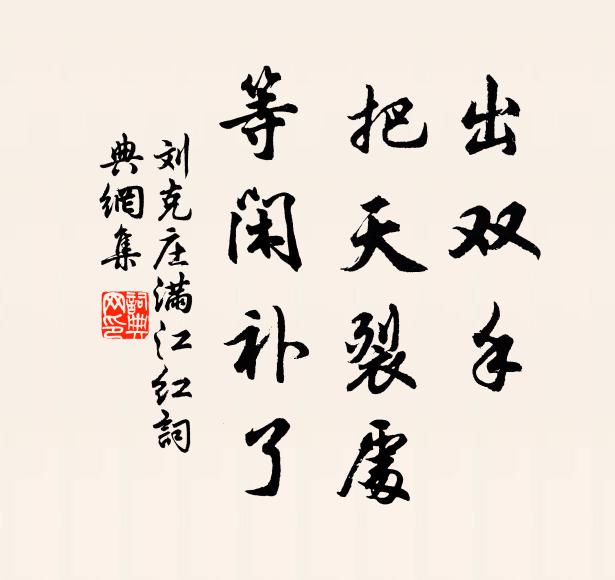 出双手
把天裂處
等闲补了
刘克庄满江红詞
典網集
詞典网印